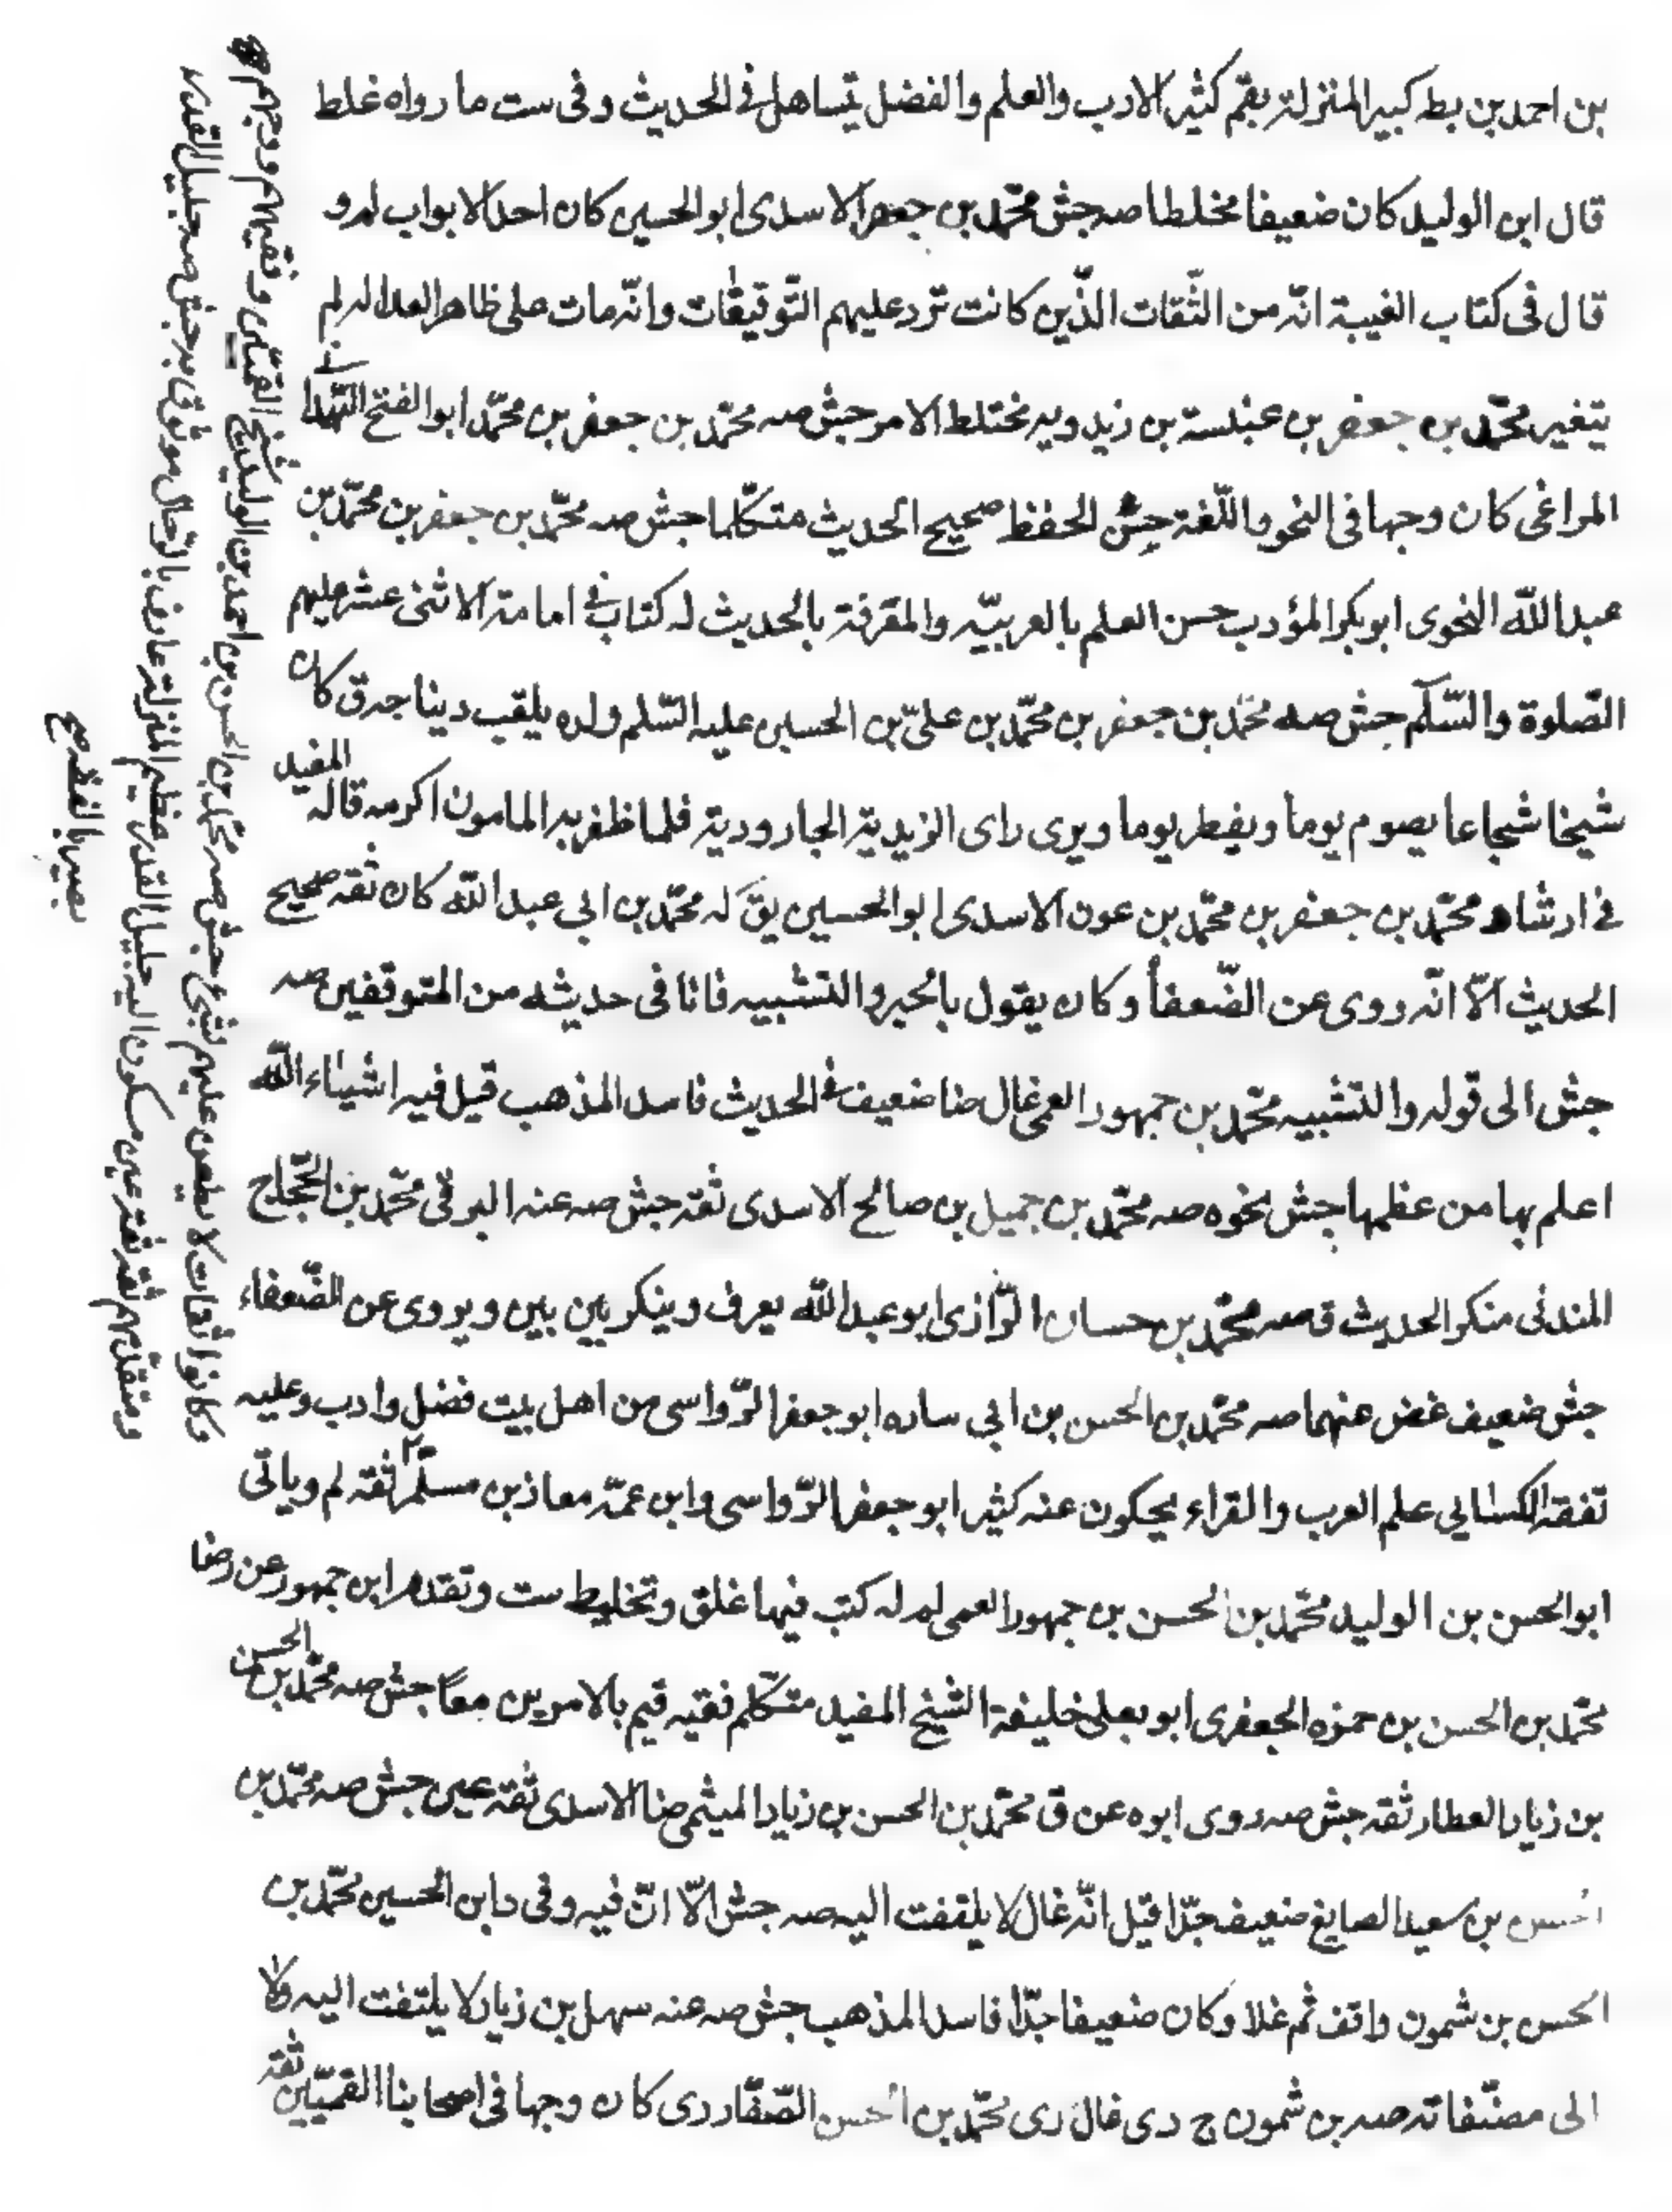 بن احمد بن بطه كبير المنزلة بقم كثير الادب والعلم والفضل يتساهل فى الحديث وفى ست ما رواه غلط
قال ابن الوليد كان ضعيفا مخلطا صه جش محمّد بن جعفر الاسدى ابو الحسين كان احد الابواب لم و
قال فى كتاب الغيبة انّه من الثّقات الذّين كانت ترد عليهم التّوقيعات وانّه مات على ظاهر العدالة لم
يتغير محمّد بن جعفر بن عنبسة بن زيدويه مختلط الامر جش صه محمّد بن جعفر بن محمّد ابو الفتح
المراغى كان وجها فى النحو واللّغة حسن الحفظ صحيح الحديث متكلّما جش صه محمّد بن جعفر بن محمّد بن
عبد اللّه النحوى ابو بكر المؤدب حسن العلم بالعربيّه والمعرفة بالحديث له كتاب فى امامة الاثنى عشر عليهم
الصّلوة والسّلام جش صه محمّد بن جعفر بن محمّد بن علىّ بن الحسين عليه السّلم ولده يلقب ديباجه ق كان
شيخا شجاعا يصوم يوما ويفطر يوما ويرى راى الزيدية الجارودية فلما ظفر به المامون اكرمه قاله المفيد
فى ارشاده محمّد بن جعفر بن محمّد بن عون الاسدى ابو الحسين يق له محمّد بن ابى عبد اللّه كان ثقه صحيح
الحديث الّا انّه روى عن الضّعفأ وكان يقول بالجبر والتشبيه فانا فى حديثه من المتوقفين صه
جش الى قوله والتشبيه محمّد بن جمهور العمى غال ضا ضعيف فى الحديث فاسد المذهب قيل فيه اشياء اللّه
اعلم بها من عظمها جش نحوه صه محمّد بن جميل بن صالح الاسدى ثقه جش صه عنه البرقى محمّد بن الحجّاج
المدنى منكر الحديث ق صه محمّد بن حسان الرّازى ابو عبد اللّه يعرف وينكر بين بين ويروى عن الضّعفاء
جش ضعيف غض عنهما صه محمّد بن الحسن بن ابى ساره ابو جعفر الرّواسى من اهل بيت فضل وادب وعليه
تفقه الكسايى علم العرب والقراء يحكون عنه كثيرا ابو جعفر الرّواسى وابن عمّه معاذ بن مسلم ثقه لم وياتى
ابو الحسن بن الوليد محمّد بن الحسن بن جمهور العمى لم له كتب فيها غلق وتخليط ست وتقدم ابن جمهور عن رضا
محمّد بن الحسن بن حمزه الجعفرى ابو يعلى خليفة الشيخ المفيد متكلّم فقيه قيم بالامرين معًا جش صه محمّد بن الحسن
بن زياد العطار ثقه جش صه روى ابوه عن ق محمّد بن الحسن بن زياد الميثمى ضا الاسدى ثقه عين جش صه محمّد بن
الحسن بن سعيد الصايغ ضعيف جدّا قيل انّه غال لا يلتفت اليه صه جش الّا انّ فيه وفى د ابن الحسين محمّد بن
الحسن بن شمون واقف ثم غلا وكان ضعيفا جدّا فاسد المذهب جش صه عنه سهل بن زياد لا يلتفت اليه ولا
الى مصنّفاته صه بن شمون ج دى غال رى محمّد بن الحسن الصّفّار رى كان وجها فى اصحابنا القمّيّين ثقه
محمّد بن الحسن بن احمد بن الوليد شيخ القميّين وفقيههم ووجههم
وكانوا ثقات لا يطعن عليهم بشئ جش صه
ومتقدمهم ثقه ثقه عين مسكون اليه جليل القدر عظيم المنزلة عارف بالرّجال موثوق به جش صه جليل القدر
بصير بالفقه صح